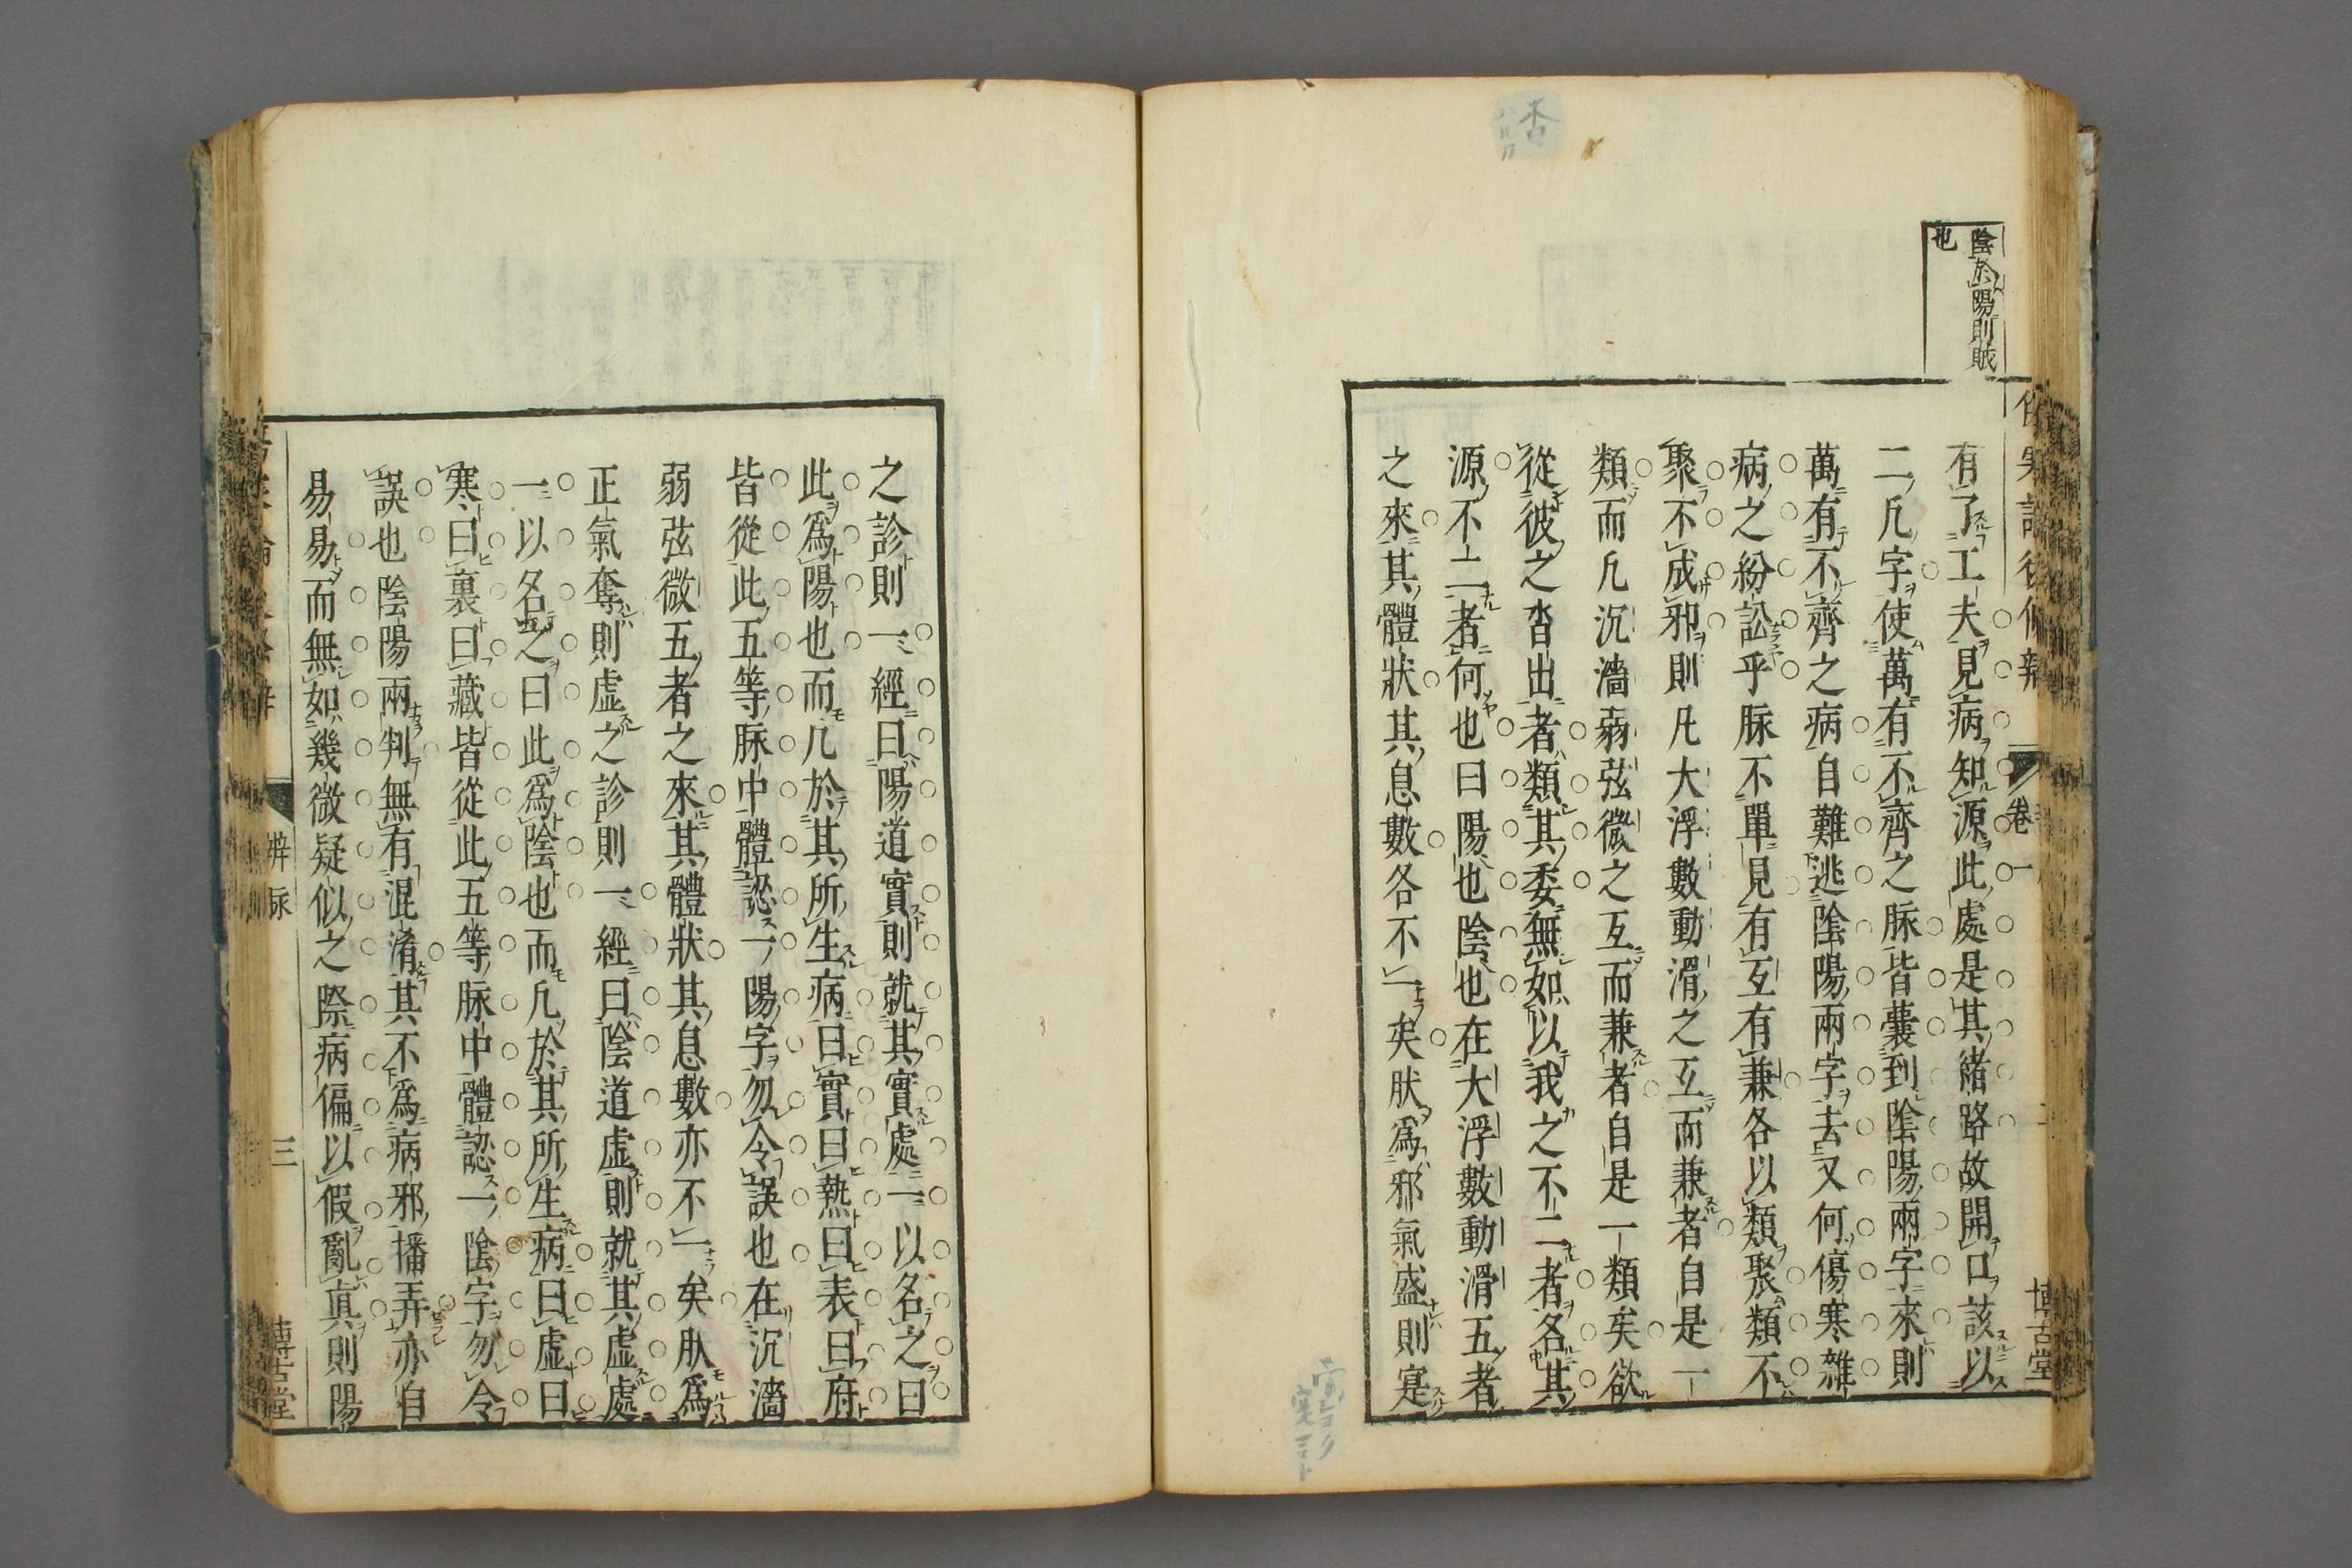 陰於陽則賊
也
卷一
博古堂
有了工夫見病知源此處是其緒路故開口該以
二凢字使萬有不齊之脉皆囊到陰陽兩字來則
萬有不齊之病自難逃陰陽兩字去又何傷寒雜
病之紛訟乎脉不單見有互有兼各以類聚類不
聚不成邪則凡大浮數動滑之互而兼者自是一
類而凢沉濇弱弦微之互而兼者自是一類矣欲
從彼之沓出者類其委無如以我之不二者名其
源不二者何也曰陽也陰也在大浮數動滑五者
之來其體狀其息數各不一矣肰爲邪氣盛則寔
之診則一經曰陽道實則就其實處一以名之曰
此爲陽也而凢於其所生病曰實曰熱曰表曰府
皆從此五等脉中體認一陽字勿令誤也在沉濇
弱弦微五者之來其體狀其息數亦不一矣肰爲
正氣奪則虛之診則一經曰陰道虛則就其虛處
一以名之曰此爲陰也而凢於其所生病曰虛曰
寒曰裏曰藏皆從此五等脉中體認一陰字勿令
誤也陰陽兩判無有混淆其不爲病邪播弄亦自
易易而無如幾微疑似之際病偏以假亂真則陽
辨脉
三
博古堂